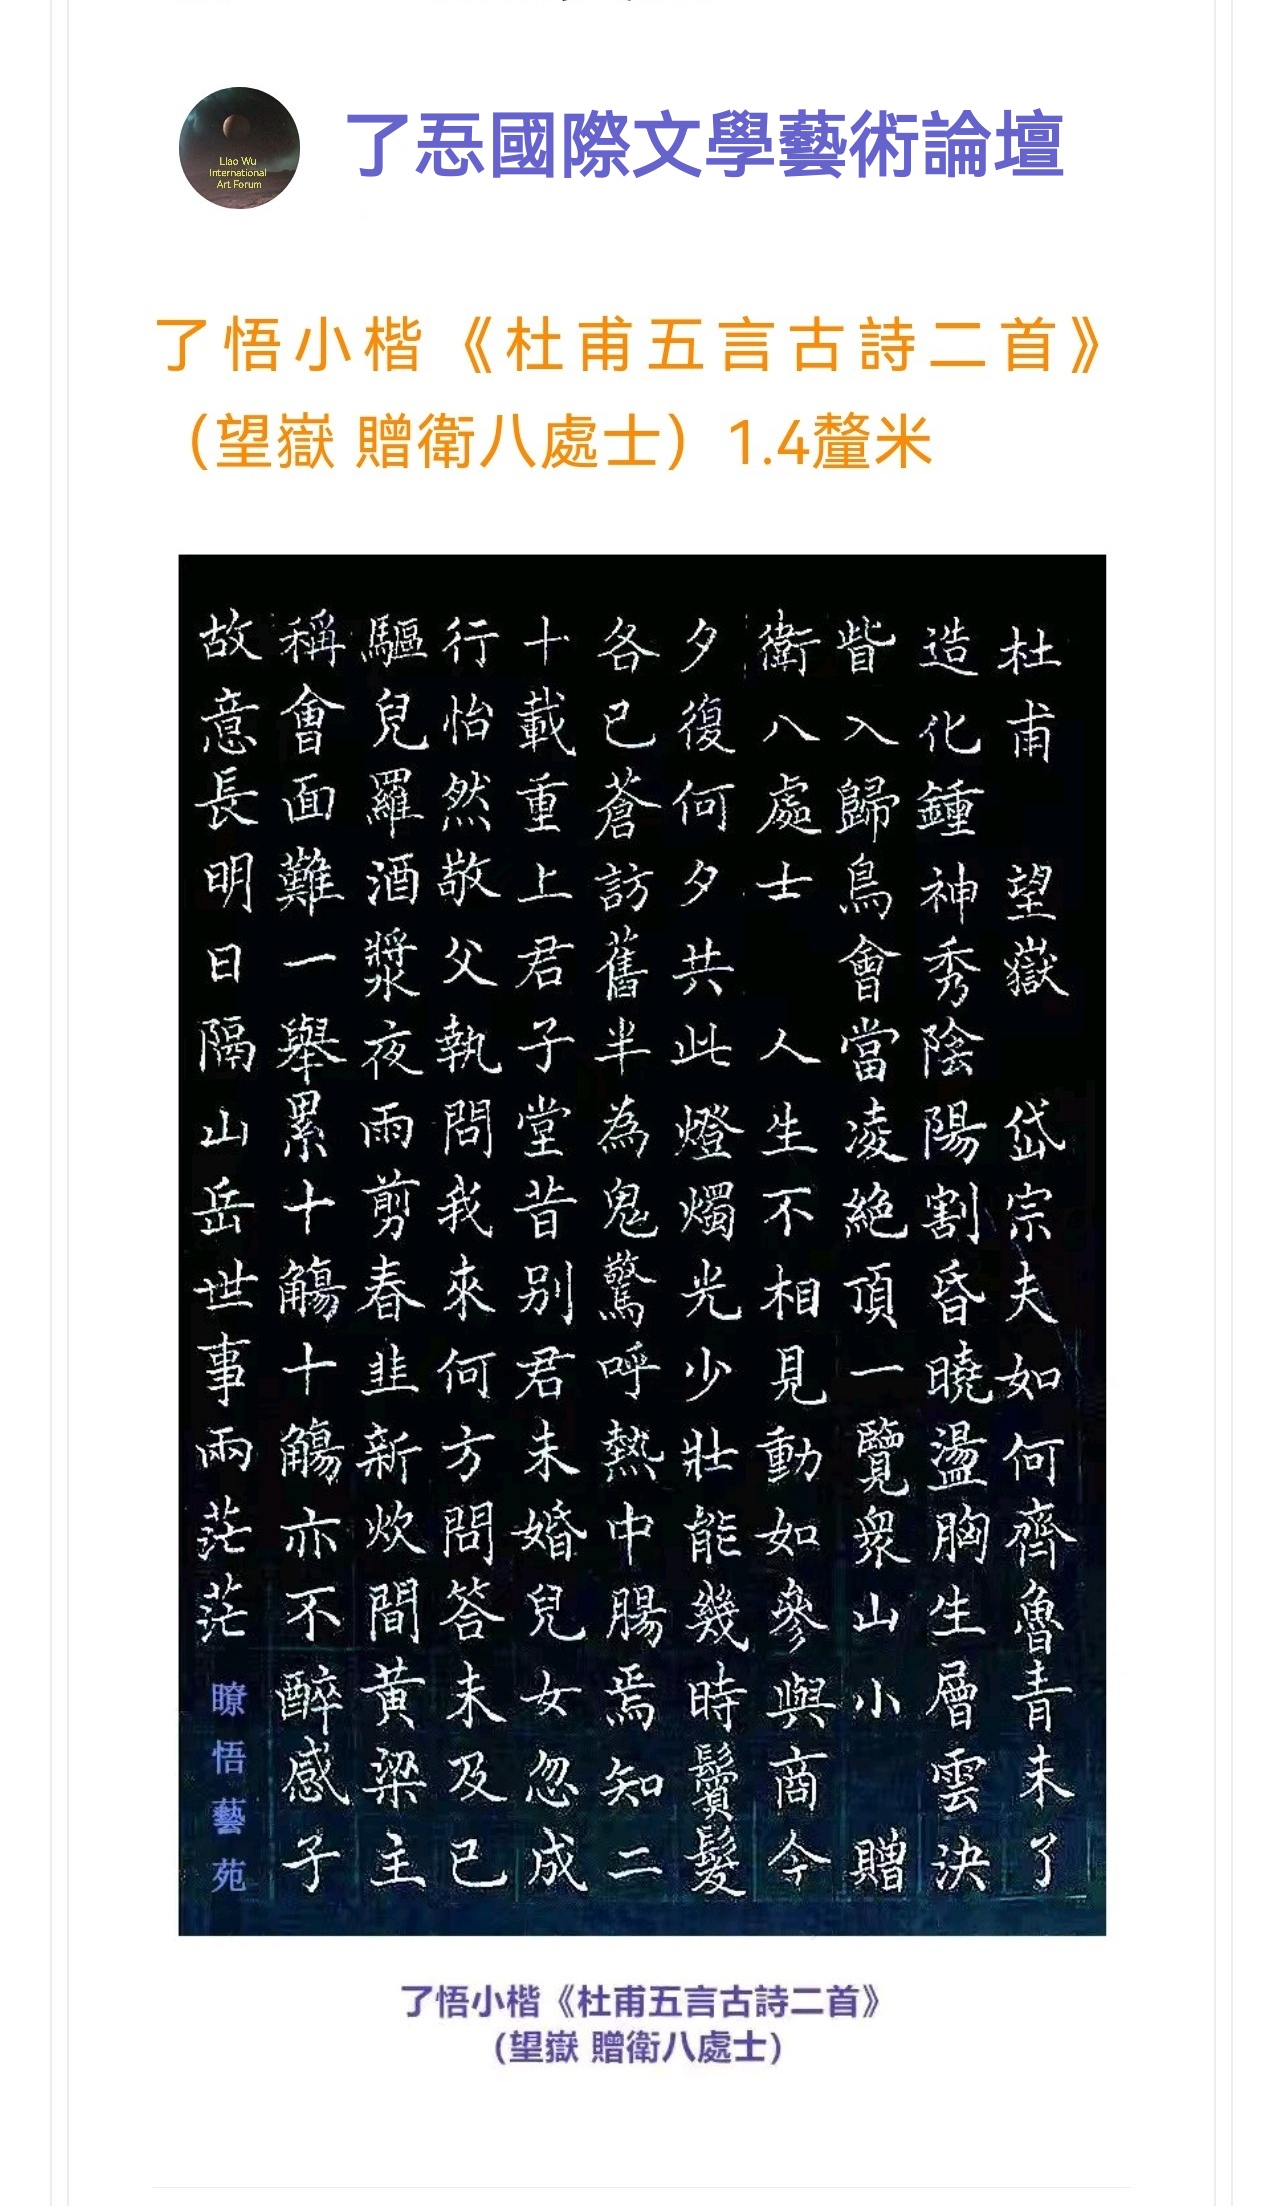 Liao Wu
International
Art Forum
了忢國際文學藝術論壇
了悟小楷《杜甫五言古詩二首》
（望嶽 贈衛八處士）1.4釐米
杜甫 望嶽 岱宗夫如何齊魯青未了
造化鍾神秀陰陽割昏曉盪胸生層雲決
眥入歸鳥會當凌絕頂一覽衆山小 贈
衛八處士 人生不相見動如參與商今
夕復何夕共此燈燭光少壯能幾時鬢髮
各已蒼訪舊半為鬼驚呼熱中腸焉知二
十載重上君子堂昔别君未婚兒女忽成
行怡然敬父執問我來何方問答未及已
驅兒羅酒漿夜雨剪春韭新炊間黃粱主
稱會面難一舉累十觴十觴亦不醉感子
故意長明日隔山岳世事兩茫茫
瞭悟藝苑
了悟小楷《杜甫五言古詩二首》
（望嶽 贈衛八處士）